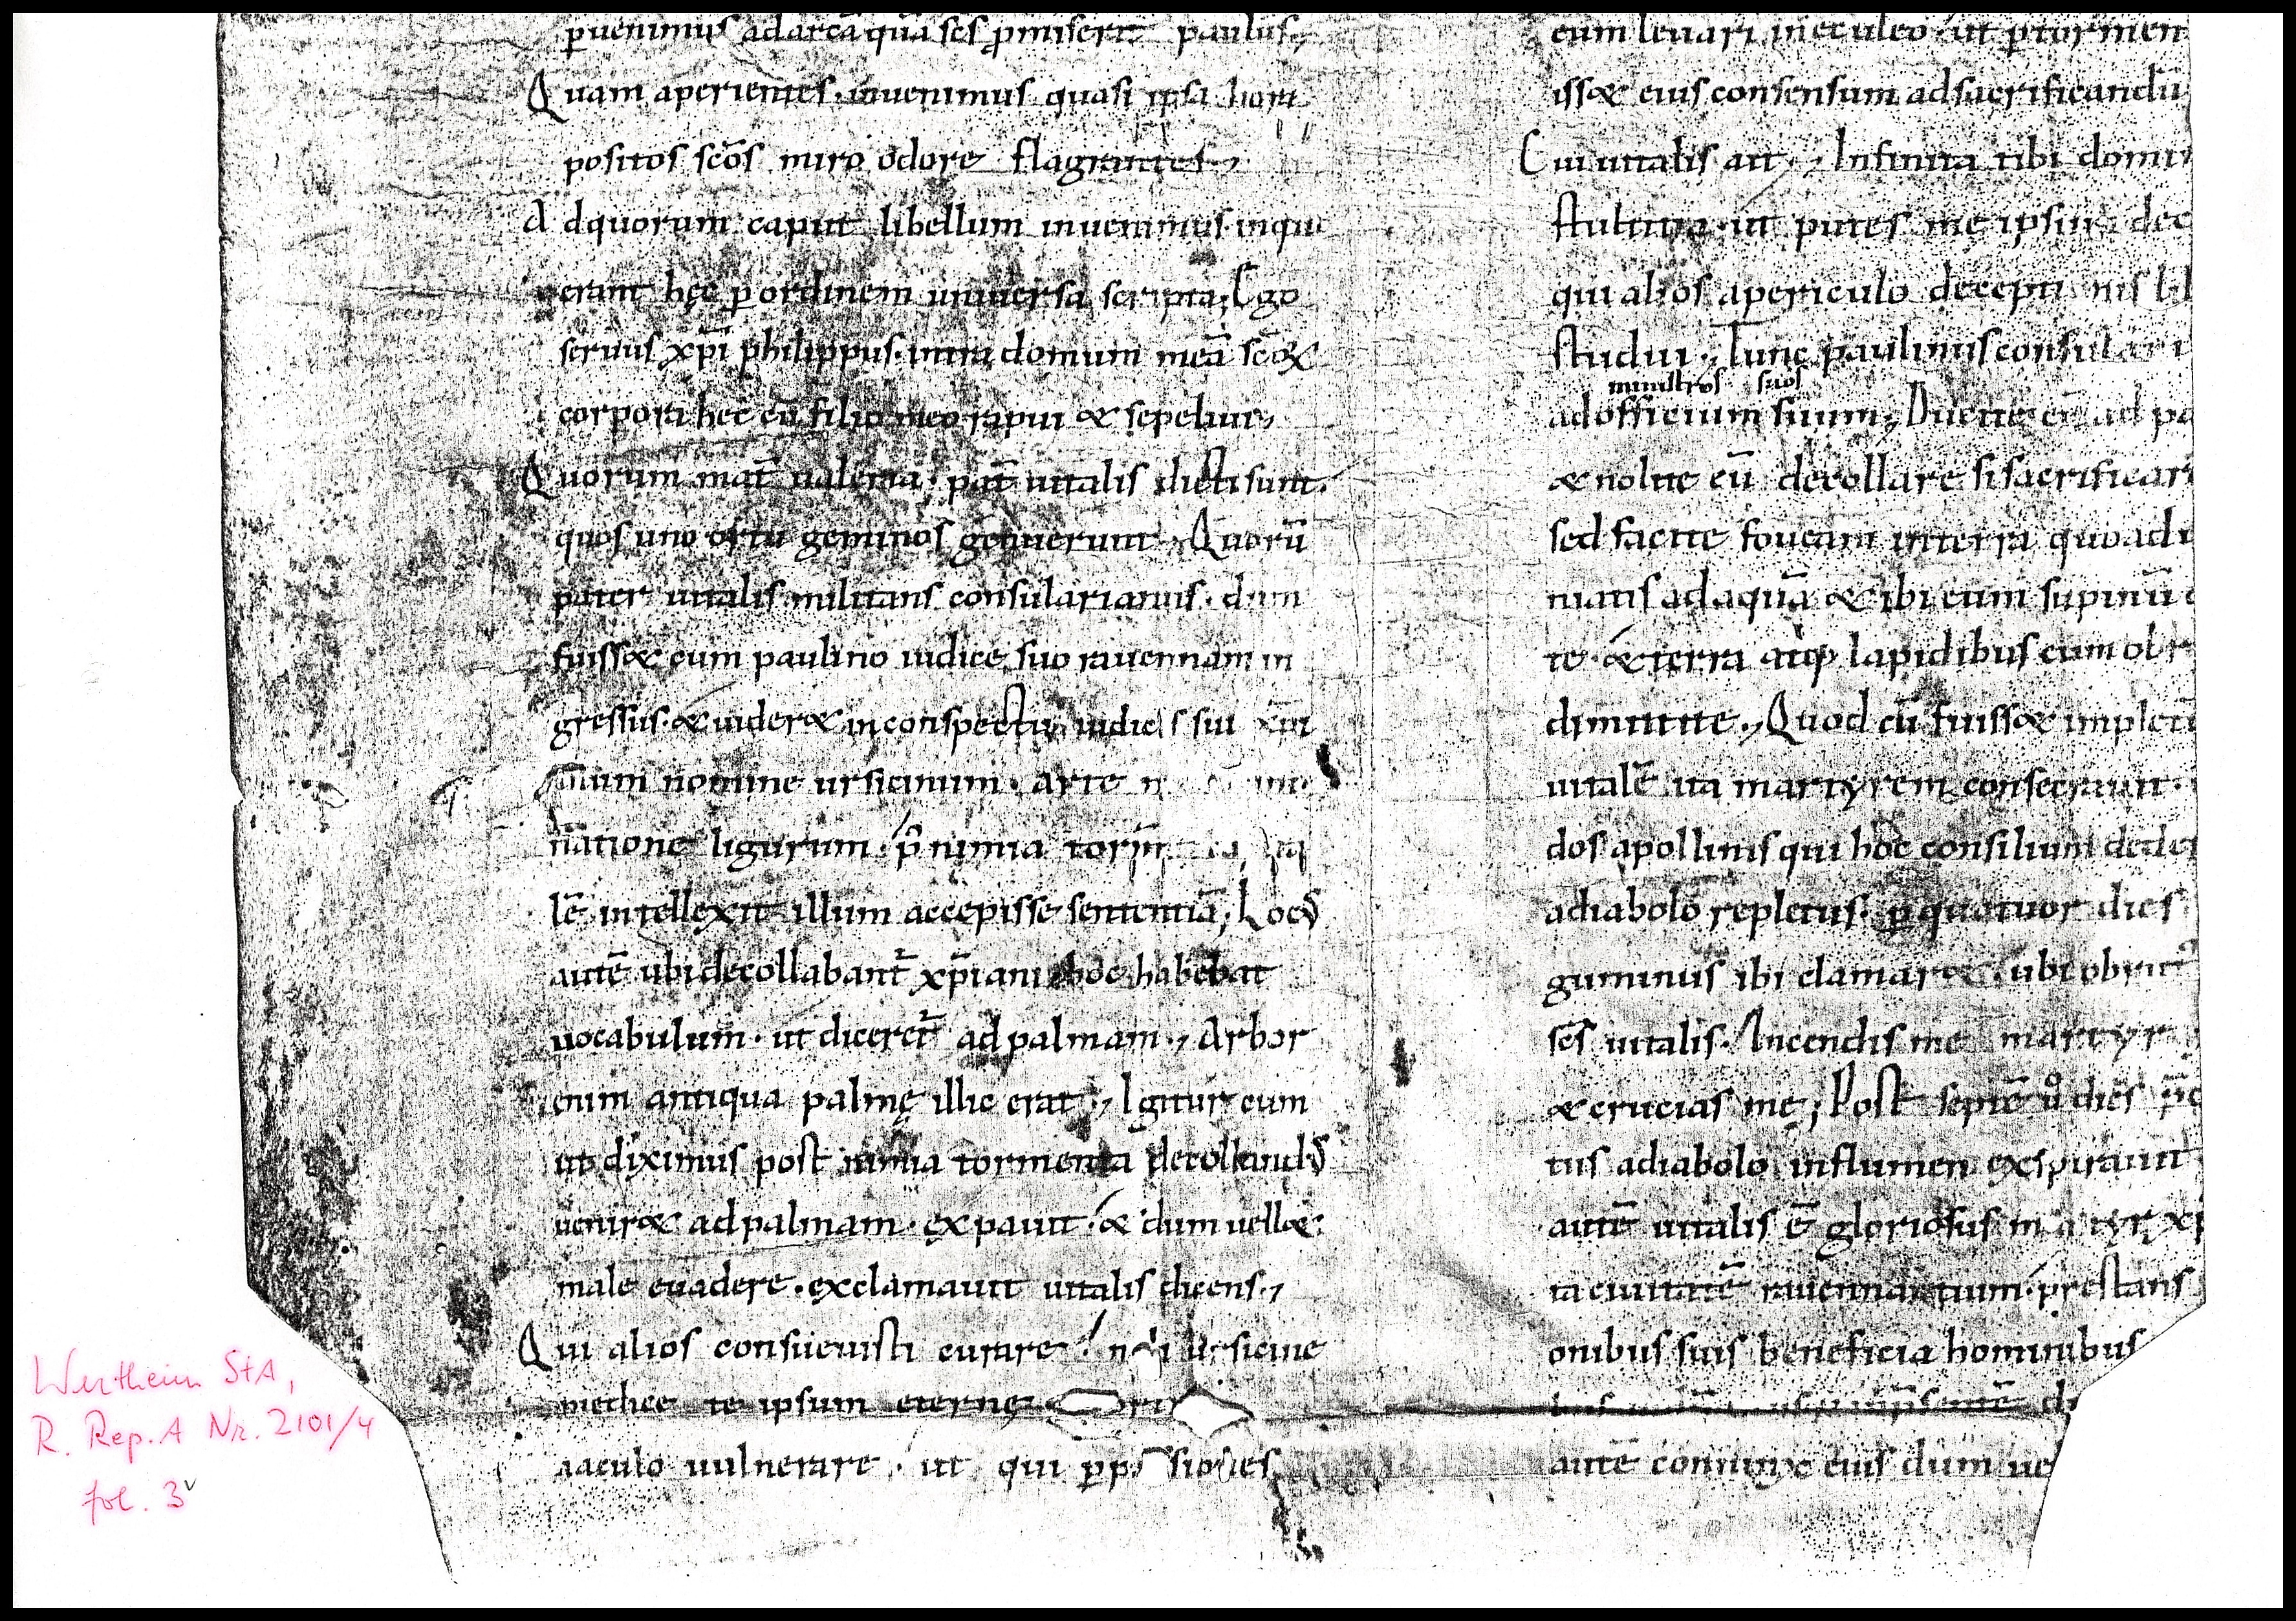 puenimus adarcā quā scs pmiserat paulus.,
Quam aperientes. inuenimus quasi ipsa hora
positos scōs miro odore flagrantes.,
Adquorum caput libellum inuenimus. inquo
erant hęc p ordinem uniuersa scripta; Ego
seruus xp̄i philippus. intra domum meā scōꝝ
corpora hec cū filio meo rapui & sepeliui.,
Quorum mat̄ ualeria. pat̄ uitalis dicti sunt.
quos uno ortu geminos genuerunt. Quorū
pater uitalis militans consularianis. dum
fuiss& cum paulino iudice suo rauennam in
gressus. & uider& in conspectu iudicis sui xp̄i
anum nomine ursicinum. arte
natione ligurum. p nimia torm
lē intellexit illum accepisse sententiā; Loc
autē ubi decollabant̄ xp̄iani hoc habebat
uocabulum. ut diceret̄ ad palmam., Arbor
enim antiqua palmę illic erat., Igitur cum
ut diximus post nimia tormenta decolland
uenir& adpalmam. expauit. & dum uell&
male euadere. exclamauit uitalis dicens.,
Qui alios consueuisti curare. noli ursicine
te ipsum eternę
iaculo uulnerare. ut qui p passiones
eum leuari in eculeo. ut p tormen
iss& eius consensum adsacrificandū
Cui uitalis ait., Infinita tibi domin
stultitia. ut putes me ipsum dec
qui alios apericulo decepti nis lib
studui., Tunc paulinus consulari
ministros suos
adofficium suum; Ducite eū ad pa
& nolite eū decollare si sacrificar
sed facite foueam in terra quo ad u
niatis ad aquā & ibi eum supinū
te. & terra atq; lapidibus eum obr
dimittite., Quod cū fuiss& impletū
uitalē ita martyrem consecrauit.
dos apollinis qui hoc consilium deder
adiabolo repletus. p quatuor dies
guminus ibi clamar& ubi obrut
scs uitalis. Incendis me martyr
& crucias me; Post septē u dies
tus adiabolo influmen exspirauit
autē uitalis ē gloriosus martyr xp
ta ciuitatē rauennantium. prestans
onibus suis beneficia hominibus
autē coniunx eius dum ue
Wertheim StA,
R. Rep. A Nr. 2101/4
fol. 3v